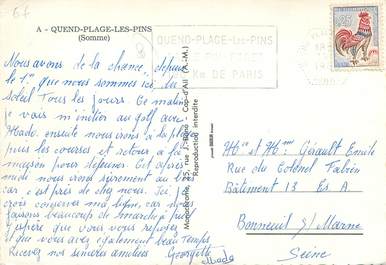 67
A - QUEND-PLAGE-LES-PINS
(Somme)
QUEND-PLAGE-Les-PINS
Km DE PARIS
0,25
Nous avons de la chance, depuis
le 1er que nous sommes ici, du
soleil Tous les jours. Ce matin
je vais m'initier au golf avec
Abado. ensuite nous irons à la plage
puis les courses et retour à la
maison pour déjeuner. Cet après
midi nous irons sûrement au bois
car c'est près de chez nous. J'ai
crois conserver ma ligne, car nous
faisons beaucoup de marche à pied
J'espère que vous vous reposez
et que vous avez également beau Temps
Recevez nos sincères amitiés Georgette
Abado
Monocolore, 25, rue J. Bono - Cap-d'Ail (A.-M.)
Reproduction interdite
Mr et Mme Gérault Emile
Rue du Colonel Fabien
Bâtiment 13 Es A
Bonneuil s/ Marne
Seine